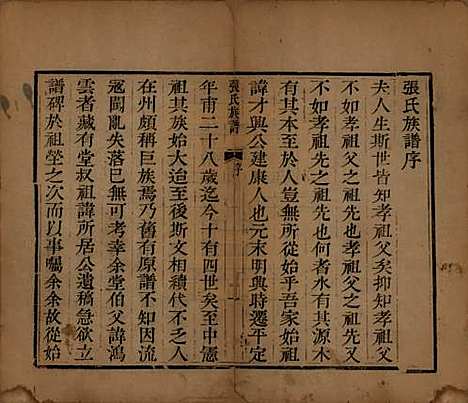 張氏族譜序
夫人生斯世皆知孝祖父矣抑知孝祖父
不如孝祖父之祖先也不知孝祖父之祖先
不如孝祖先之祖先也何者水有其源木
有其本至於人豈無所從始乎吾家始祖
諱才興公建康人也元末明興時遷平定
張氏族譜 序 一
年甫二十八歲迄今十有四世矣至中憲
祖其族始大迨至後斯文相續代不乏人
在州頗稱巨族焉乃舊有原譜不知因流
冦闖亂失落已無可考幸余堂伯父諱鴻
雲者藏有堂叔祖諱所居公遺稿急欲立
譜碑於祖塋之次而以事囑余余故從始